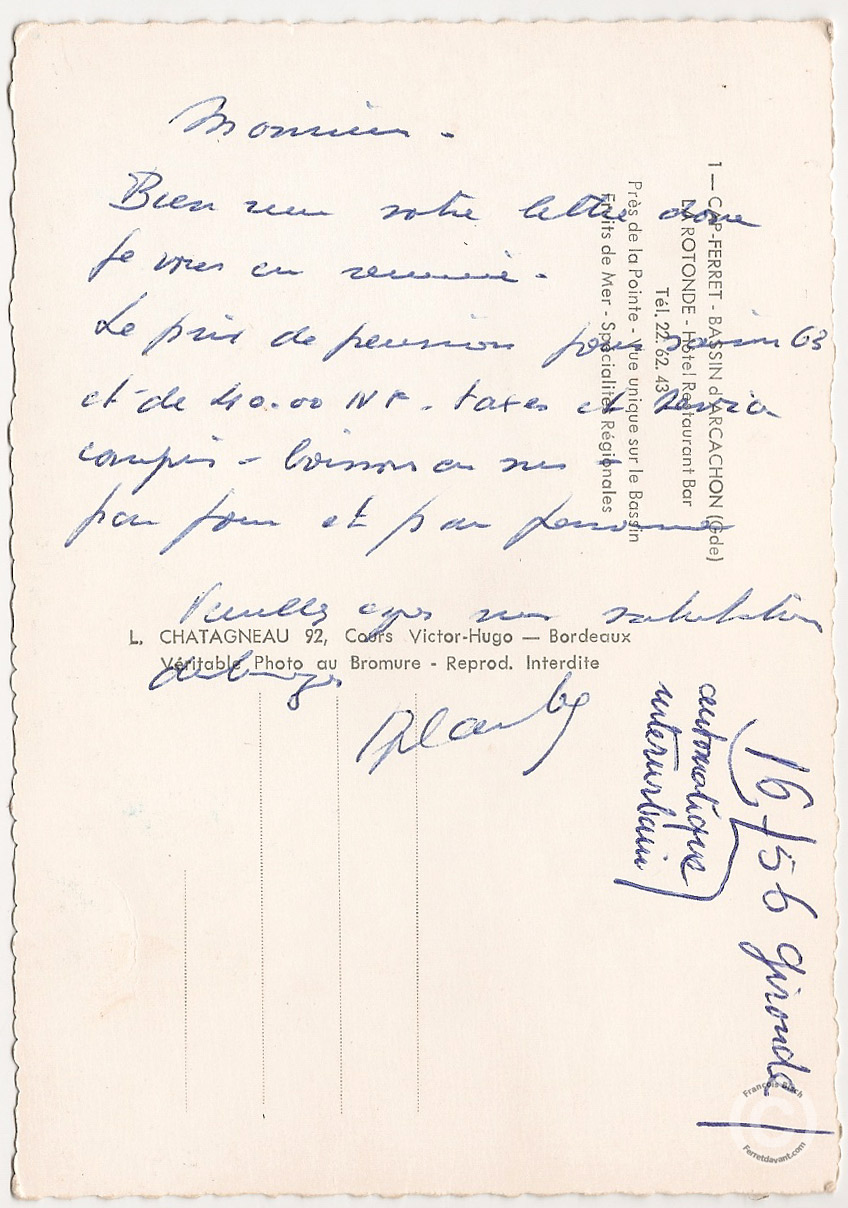 Monsieur -
Bien reçu votre lettre dont
Je vous en remercie -
Le prix de pension pour saison 63
et de 40.00 NF - taxes et service
compris - boisson en sus -
par jour et par personne
Veuillez agréer mes salutations
distinguées
1 — CAP-FERRET - BASSIN d'ARCACHON (Gde)
LA ROTONDE - Hôtel Restaurant Bar
Tél. 22. 62. 43
Près de la Pointe - Vue unique sur le Bassin
Fruits de Mer - Spécialités Régionales
L. CHATAGNEAU 92, Cours Victor-Hugo — Bordeaux
Véritable Photo au Bromure - Reprod. Interdite
16 / 56 Gironde
automatique
interurbain
François Bisch
Ferretdavant.com